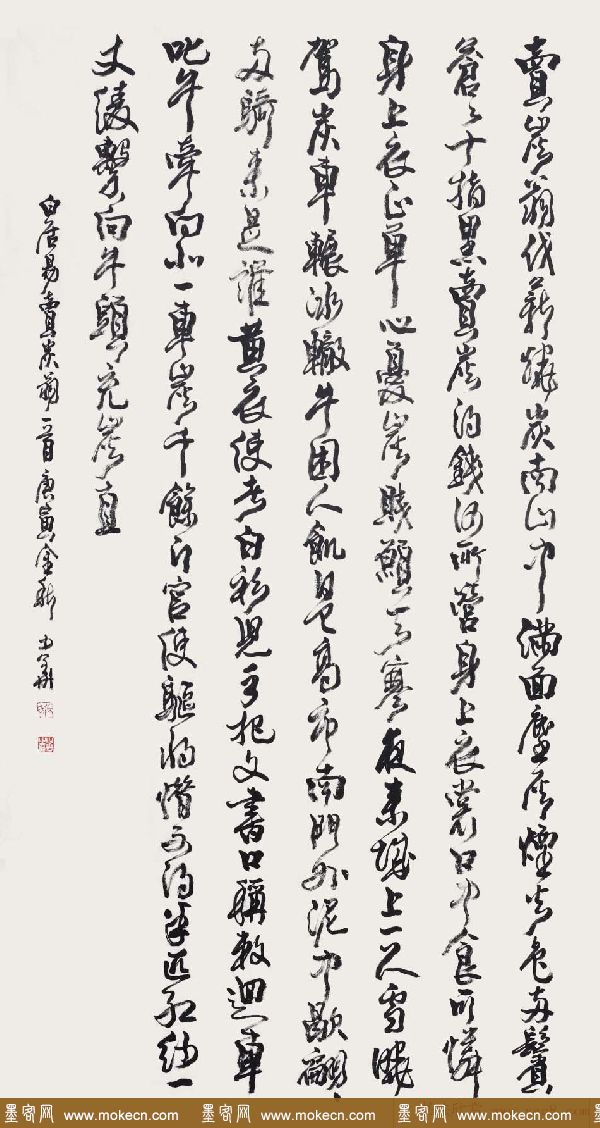 賣炭翁伐薪燒炭南山中滿面塵灰煙火色兩鬢
蒼々十指黑賣炭得錢何所營身上衣裳口中食可憐
身上衣正單心憂炭賤願天寒夜來城上一尺雪曉
駕炭車輾冰轍牛困人飢日已高市南門外泥中歇翩々
兩騎來是誰黃衣使者白衫兒手把文書口稱敕迴車
叱牛牽向北一車炭千餘斤官使驅將惜不得半匹紅紗一
丈綾繫向牛頭充炭直
白居易賣炭翁一首 庚寅金秋
墨客网 www.mokecn.com 墨客网 www.mokecn.com 墨客网 www.mokecn.com